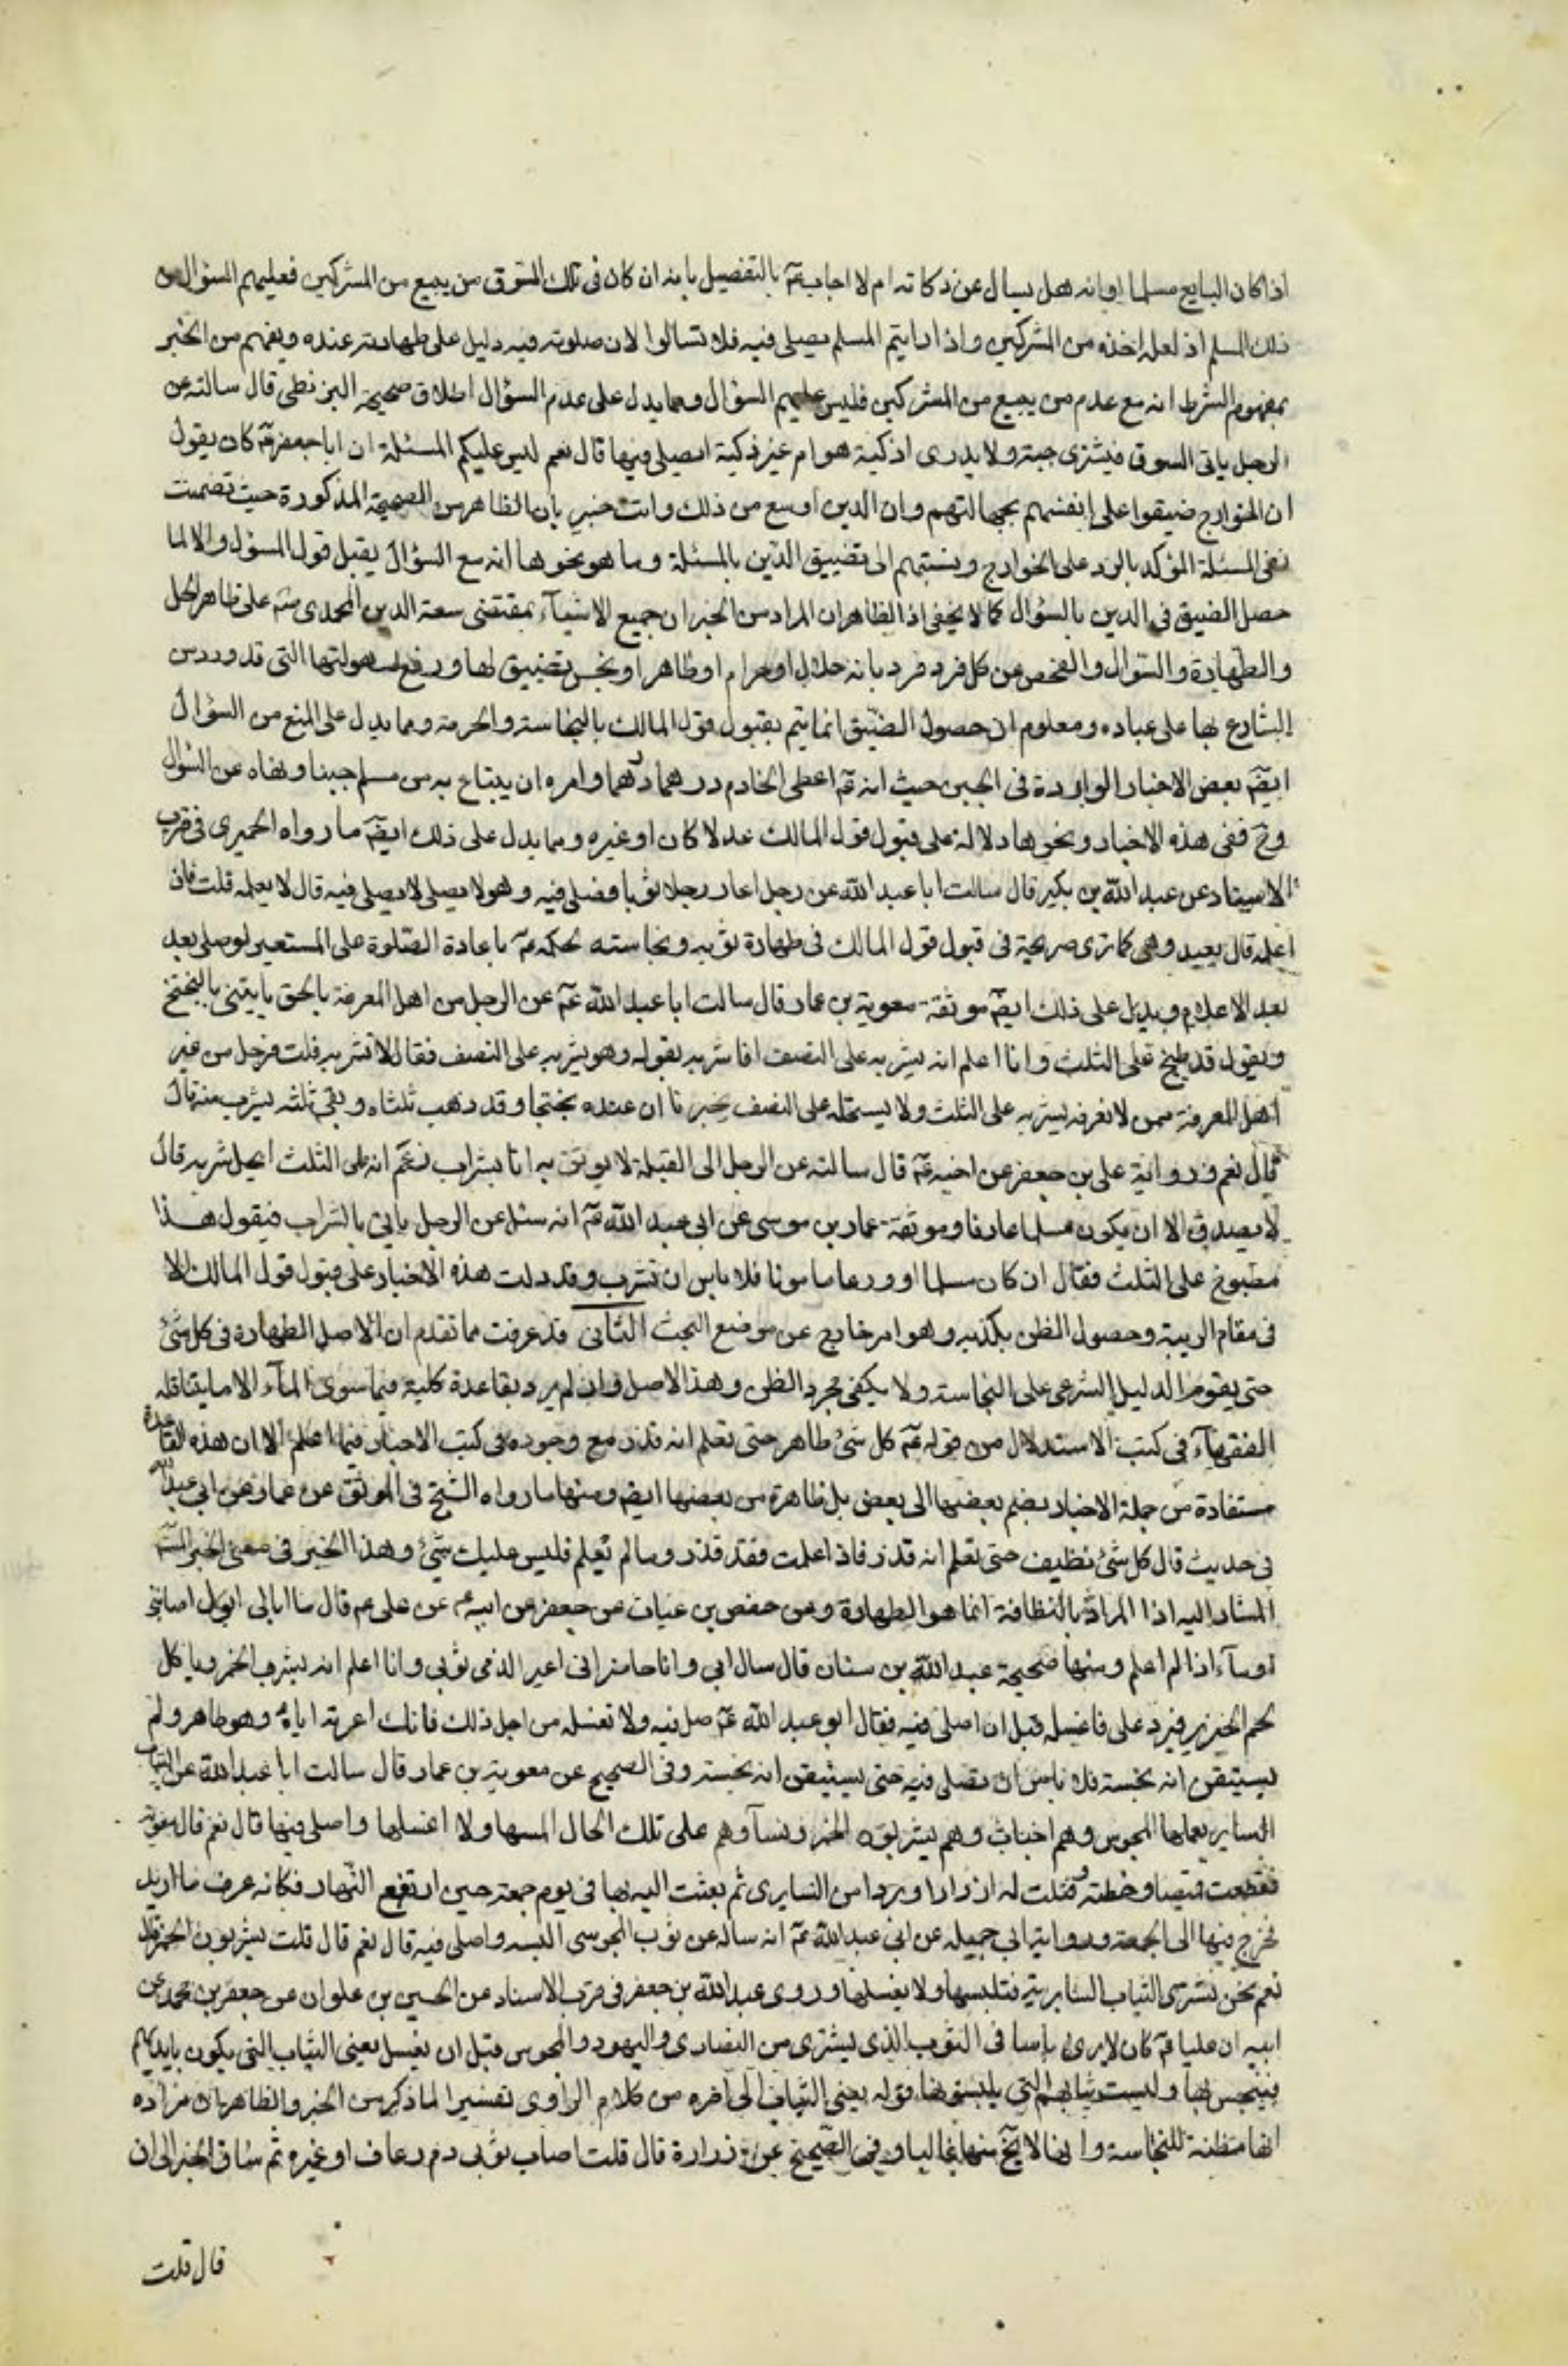 اذا كان البايع مسلما وانه هل يسال عن ذكاته ام لا اجاب عم بالتفصيل بانه ان كان فى تلك السوق من يبيع من المشركين فعليهم السؤال من
ذلك المسلم اذ لعله اخذه من المشركين واذا رايتم المسلم يصلى فيه فلا تسالوا لان صلوته فيه دليل على طهارته عنده ويفهم من الخبر
بمفهوم الشرط انه مع عدم من يبيع من المشركين فليس عليهم السؤال ومما يدل على عدم السؤال اطلاق صحيحة البزنطى قال سالته عن
الرجل ياتى السوق فيشترى جبة ولا يدرى اذكية هى ام غير ذكية ايصلى فيها قال نعم ليس عليكم المسئلة ان ابا جعفر عم كان يقول
ان الخوارج ضيقوا على انفسهم بجهالتهم وان الدين اوسع من ذلك وانت خبير بان الظاهر من الصحيحة المذكورة حيث تضمنت
نفى المسئلة المؤكد بالرد على الخوارج ونسبتهم الى تضييق الدين بالمسئلة وما هو نحوها انه مع السؤال يقبل قول المسؤل والا لما
حصل الضيق فى الدين بالسؤال كما لا يخفى اذ الظاهر ان المراد من الخبر ان جميع الاشياء بمقتضى سعة الدين المحمدى على ظاهر الحل
والطهارة والسؤال والفحص عن كل فرد فرد بانه حلال او حرام او طاهر او نجس تضييق لها ورفع لسهولتها التى قد ورد من
الشارع بها على عباده ومعلوم ان حصول الضيق انما يتم بقبول قول المالك بالنجاسة والحرمة ومما يدل على المنع من السؤال
ايضم بعض الاخبار الواردة فى الجبن حيث انه عم اعطى الخادم درهما وامره ان يبتاع به من مسلم جبنا ونهاه عن السؤال
وح ففى هذه الاخبار ونحوها دلالة على قبول قول المالك عدلا كان او غيره ومما يدل على ذلك ايضم ما رواه الحميرى فى قرب
الاسناد عن عبد الله بن بكير قال سالت ابا عبد الله عن رجل اعار رجلا ثوبا فصلى فيه وهو لا يصلى فيه قال لا يعلمه قلت فان
اعلمه قال يعيد وهى كما ترى صريحة فى قبول قول المالك فى طهارة ثوبه ونجاسته لحكمه عم باعادة الصلوة على المستعير لو صلى بعد
بعد الاعلام ويدل على ذلك ايضم موثقة معوية بن عمار قال سالت ابا عبد الله عم عن الرجل من اهل المعرفة بالحق ياتينى بالبختج
ويقول قد طبخ على الثلث وانا اعلم انه يشربه على النصف افاشربه بقوله وهو يشربه على النصف فقال لا تشربه قلت فرجل من غير
اهل المعرفة ممن لا نعرفه يشربه على الثلث ولا يستحله على النصف يخبرنا ان عنده بختجا وقد ذهب ثلثاه وبقى ثلثه يشرب منه قال
قال نعم ورواية على بن جعفر عن اخيه عم قال سالته عن الرجل الى القبلة لا يوثق به اتا بشراب زعم انه على الثلث ايحل شربه قال
لا يصدق الا ان يكون مسلما عارفا وموثقة عمار بن موسى عن ابى عبد الله عم انه سئل عن الرجل ياتى بالشراب فيقول هذا
مطبوخ على الثلث فقال ان كان مسلما او ورعا مامونا فلا باس ان تشرب وقد دلت هذه الاخبار على قبول قول المالك الا
فى مقام الريبة وحصول الظن بكذبه وهو امر خارج عن موضع البحث الثانى قد عرفت مما تقدم ان الاصل الطهارة فى كل شئ
حتى يقوم الدليل الشرعى على النجاسة ولا يكفى مجرد الظن وهذا الاصل وان لم يرد بقاعدة كلية فيما سوى الماء الا ما يتناقله
الفقهاء فى كتب الاستدلال من قوله عم كل شئ طاهر حتى تعلم انه قذر مع وجوده فى كتب الاخبار فيما اعلم الا ان هذه القاعدة
مستفادة من جملة الاخبار بضم بعضها الى بعض بل ظاهرة من بعضها ايضم ومنها ما رواه الشيخ فى الموثق عن عمار عن ابى عبد الله
فى حديث قال كل شئ نظيف حتى تعلم انه قذر فاذا علمت فقد قذر وما لم تعلم فليس عليك شئ وهذا الخبر فى معنى الخبر
المشار اليه اذ المراد بالنظافة انما هو الطهارة وعن حفص بن غياث عن جعفر عن ابيه عم عن على عم قال ما ابالى ابول اصابنى
او ماء اذا لم اعلم ومنها صحيحة عبد الله بن سنان قال سال ابى وانا حاضر انى اعير الذمى ثوبى وانا اعلم انه يشرب الخمر وياكل
لحم الخنزير فيرد على فاغسله قبل ان اصلى فيه فقال ابو عبد الله عم صل فيه ولا تغسله من اجل ذلك فانك اعرته اياه وهو طاهر ولم
يستيقن انه نجسه فلا باس ان تصلى فيه حتى يستيقن انه نجسه وفى الصحيح عن معوية بن عمار قال سالت ابا عبد الله عن الثياب
السابرية يعملها المجوس وهم اخباث وهم يشربون الخمر ونساؤهم على تلك الحال البسها ولا اغسلها واصلى فيها قال نعم قال معوية
فقطعت قميصا وخطته وفتلت له ازرارا وبردا من السابرى ثم بعثت اليه بها فى يوم جمعة حين ارتفع النهار فكانه عرف ما اريد
فخرج فيها الى الجمعة ورواية ابى جميله عن ابى عبد الله عم انه ساله عن ثوب المجوسى البسه واصلى فيه قال نعم قال قلت يشربون الخمر قال
نعم نحن نشترى الثياب السابرية فنلبسها ولا نغسلها وروى عبد الله بن جعفر فى قرب الاسناد عن الحسين بن علوان عن جعفر بن محمد عن
ابيه ان عليا عم كان لا يرى باسا فى الثوب الذى يشترى من النصارى واليهود والمجوس قبل ان يغسل يعنى الثياب التى يكون بايديهم
فينجس بها وليست ثيابهم التى يلبسونها قوله يعنى الثياب الى اخره من كلام الراوى تفسيرا لما ذكر من الخبر والظاهر ان مراده
انها مظنة للنجاسة وانها لا تخ منها غالبا وفى الصحيح عن زرارة قال قلت اصاب ثوبى دم رعاف او غيره ثم ساق الخبر الى ان
قال قلت